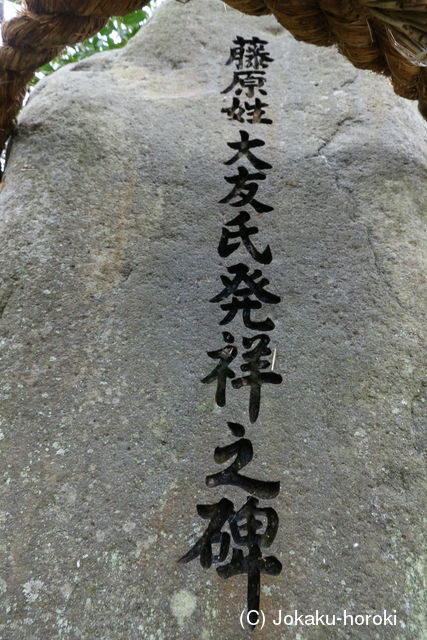 藤原姓大友氏発祥之碑
(C) Jokaku-horoki